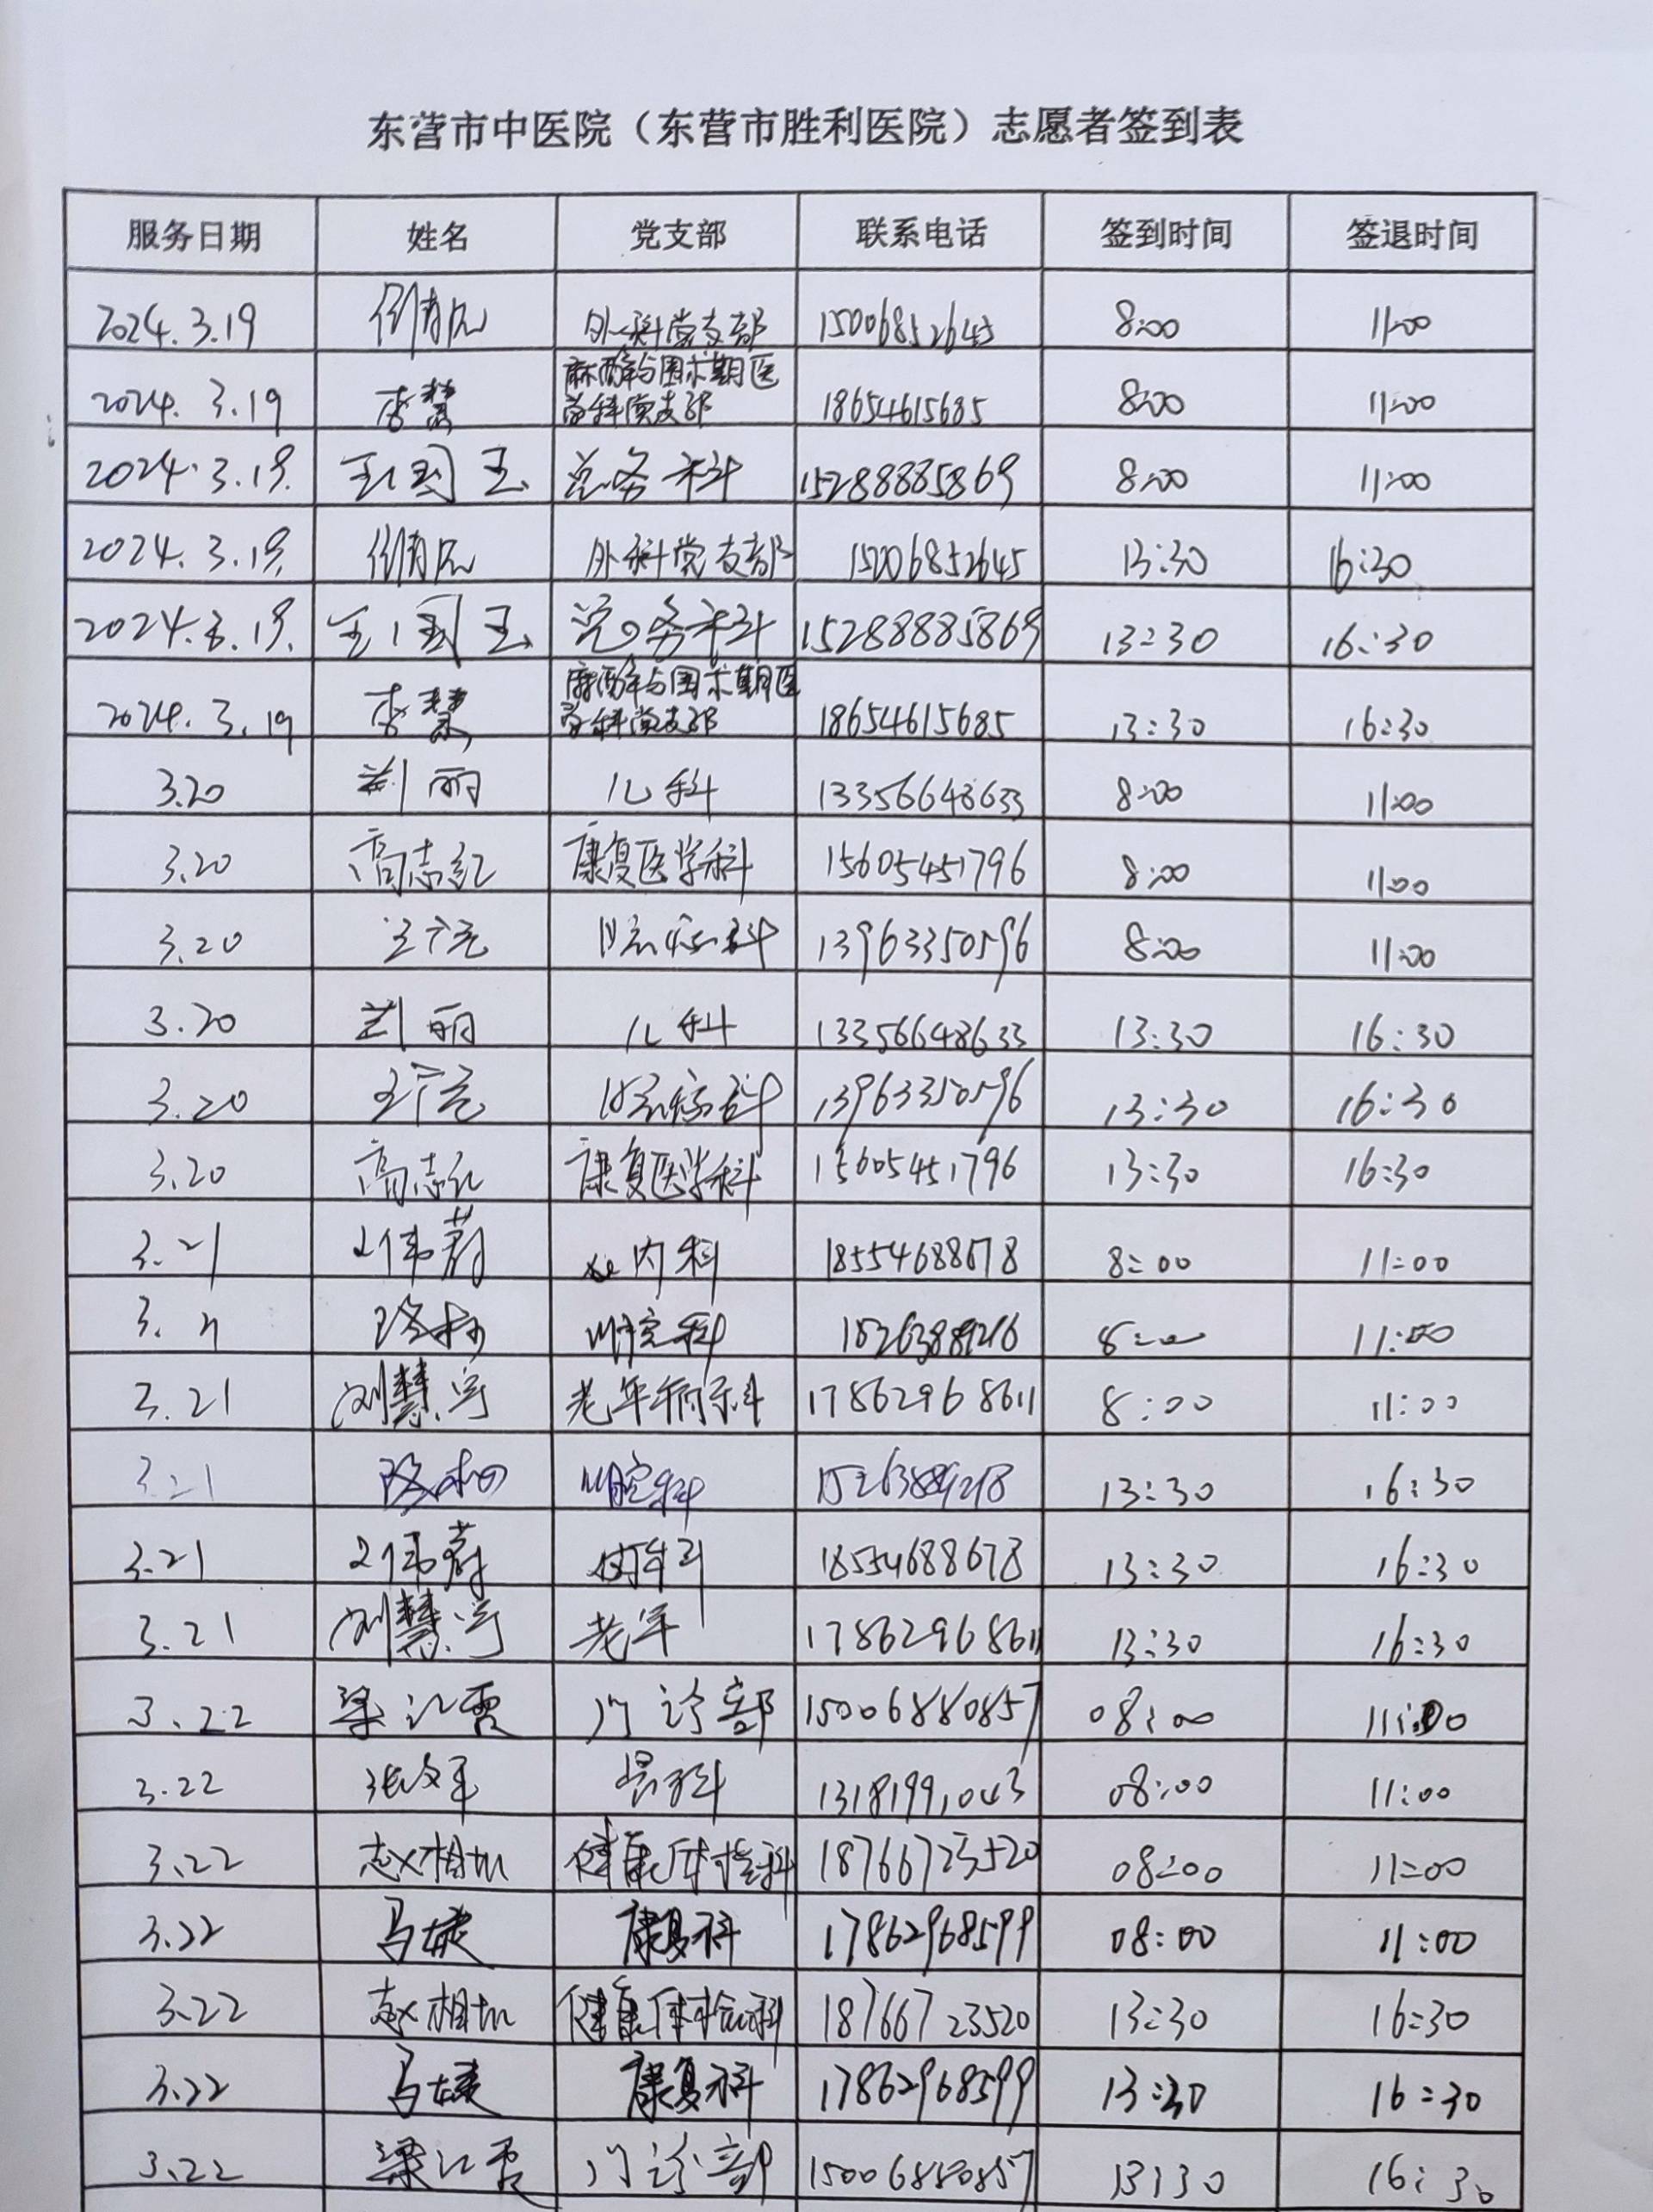 东营市中医院（东营市胜利医院）志愿者签到表
服务日期 姓名 党支部 联系电话 签到时间 签退时间
2024.3.19 外科党支部 15006852645 8:00 11:00
2024.3.19 李慧 麻醉与围术期医学科党支部 18654615685 8:00 11:00
2024.3.19. 王国玉 总务科 15288885869 8:00 11:00
2024.3.19. 外科党支部 15006852645 13:30 16:30
2024.3.19. 王国玉 总务科 15288885869 13:30 16:30
2024.3.19 李慧 麻醉与围术期医学科党支部 18654615685 13:30 16:30
3.20 刘丽 儿科 13356648633 8:00 11:00
3.20 高志红 康复医学科 15605451796 8:00 11:00
3.20 科 13963350596 8:00 11:00
3.20 刘丽 儿科 13356648633 13:30 16:30
3.20 科 13963350596 13:30 16:30
3.20 高志红 康复医学科 15605451796 13:30 16:30
3.21 内科 18554688678 8:00 11:00
3.21 口腔科 8:00 11:00
3.21 刘慧 老年病科 17862968611 8:00 11:00
3.21 口腔科 13:30 16:30
3.21 18554688678 13:30 16:30
3.21 刘慧 老年 17862968611 13:30 16:30
3.22 梁江霞 门诊部 15006880857 08:00 11:00
3.22 张文军 13181991043 08:00 11:00
3.22 赵相如 健康体检科 18766723520 08:00 11:00
3.22 马婕 康复科 17862968599 08:00 11:00
3.22 赵相如 健康体检科 18766723520 13:30 16:30
3.22 马婕 康复科 17862968599 13:30 16:30
3.22 梁江霞 门诊部 15006880857 13:30 16:30